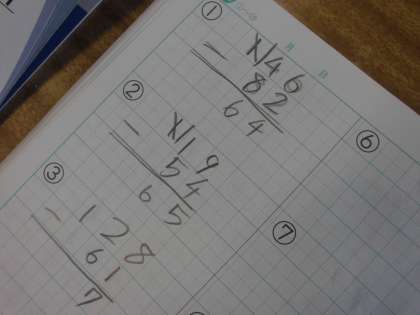 月 日
①
146
− 82
64
②
119
− 54
65
③
− 128
61
7
⑥
⑦